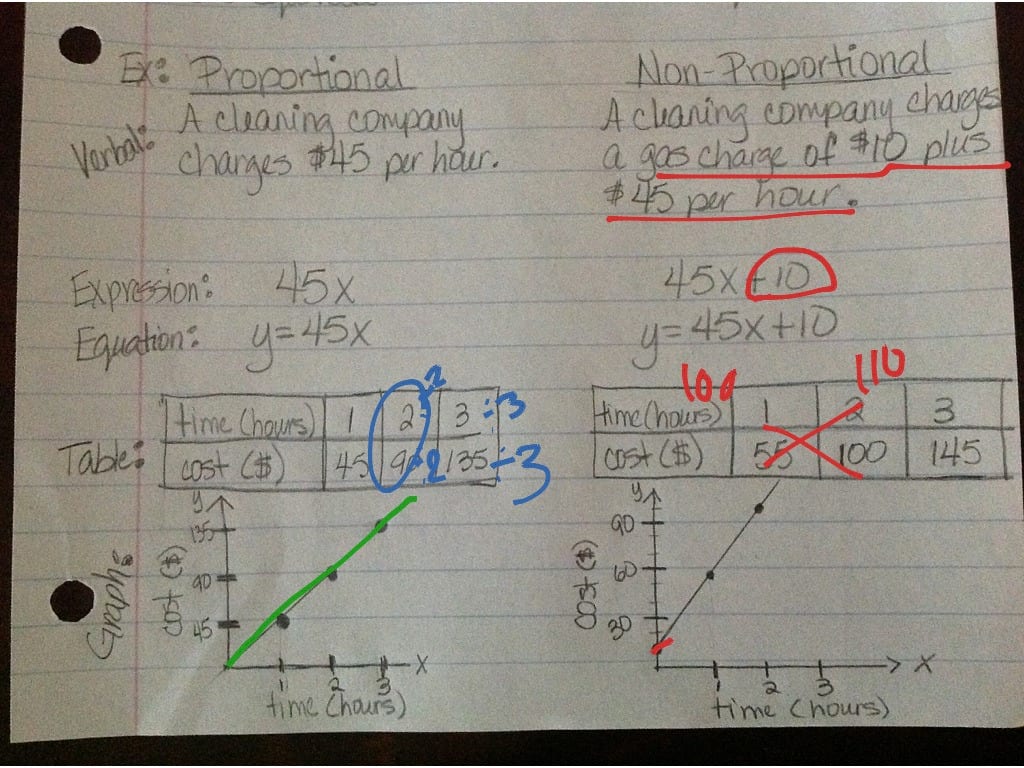 Ex: Proportional
Verbal: A cleaning company
charges $45 per hour.
Expression: 45x
Equation: y=45x
Table:
time (hours) 1 2 3 ÷3
cost ($) 45 90 ÷2 135 ÷3
Graph:
y
135
90
45
cost ($)
1 2 3 x
time (hours)
Non-Proportional
A cleaning company charges
a gas charge of $10 plus
$45 per hour.
45x+10
y=45x+10
100 110
time (hours) 1 2 3
cost ($) 55 100 145
y
90
60
30
cost ($)
1 2 3 x
time (hours)